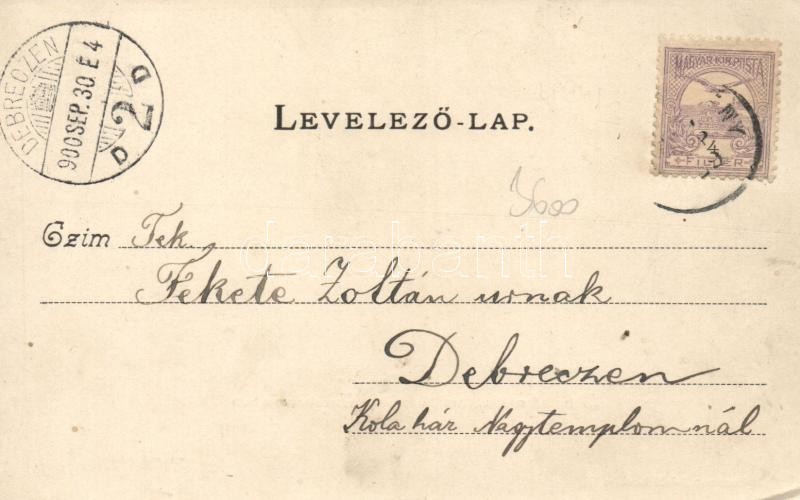 DEBRECZEN
900 SEP. 30. É 4
D 2 D
MAGYAR KIR. POSTA
FILLÉR
LEVELEZŐ-LAP.
3600
Czim Tek.
Fekete Zoltán urnak
Debreczen
Kola hár Nagytemplomnál
darabanth